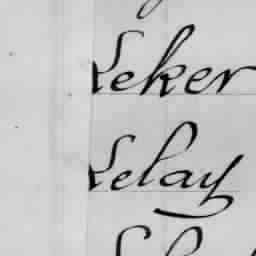 Leker
Lelay